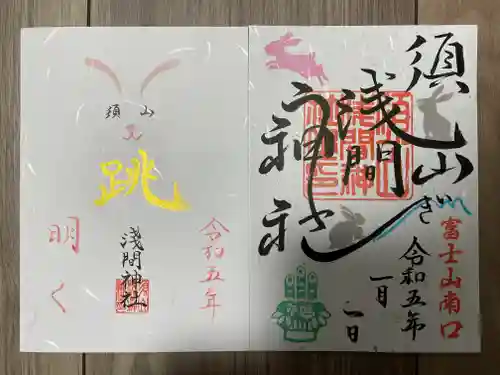 須山
浅間
神社
富士山南口
令和五年
一月
一日
須山
浅間神
社印
須山
跳
浅間神社
令和五年
明く